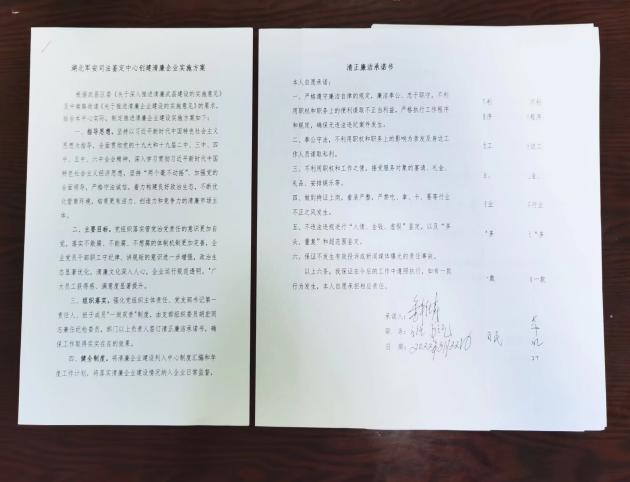 湖北军安司法鉴定中心创建清廉企业实施方案
根据武昌区委《关于深入推进清廉武昌建设的实施意见》
及中南路街道《关于推进清廉企业建设的实施意见》的要求，
结合本中心实际，制定推进清廉企业建设实施方案如下：
一、指导思想，坚持以习近平新时代中国特色社会主义
思想为指导，全面贯彻党的十九大和十九届二中、三中、四
中、五中、六中全会精神，深入学习贯彻习近平新时代中国
特色社会主义经济思想，坚持“两个毫不动摇”，加强党的
全面领导，严格守法诚信，着力构建良好政治生态，不断优
化营商环境，培育更有活力、创造力和竞争力的清廉市场主
体。
二、主要目标。党组织落实管党治党责任的意识更加自
觉，落实不敢腐、不能腐、不想腐的体制机制更加完善，企
业党员干部职工守纪律、讲规矩的意识进一步增强，政治生
态显著优化，清廉文化深入人心，企业运行规范透明，广
大员工获得感、满意度显著提升。
三、组织落实，强化党组织主体责任、党支部书记第一
责任人、班子成员“一岗双责”制度，由支部组织委员胡宏
兼任纪检委员，部门以上负责人签订清正廉洁承诺书，确
保工作取得实实在在的效果。
四、健全制度，将清廉企业建设列入中心制度汇编和年
度工作计划，将落实清廉企业建设情况纳入企业日常监督，
清正廉洁承诺书
本人自愿承诺：
一、严格遵守廉洁自律的规定，廉洁奉公，忠于职守，不利
用职权和职务上的便利谋取不正当利益，严格执行工作程序
和规定，确保无违法违纪案件发生。
二、奉公守法，不利用职权和职务上的影响为亲友及身边工
作人员谋取私利。
三、不利用职权和工作之便，接受服务对象的宴请、礼金、
礼品、安排娱乐等。
四、做到持证上岗，着装严整，严禁吃、拿、卡、要等行业
不正之风发生。
五、不违法违规进行“人情、金钱、虚假”鉴定，以及“多
头、重复”和超范围鉴定。
六、保证不发生有效投诉或新闻媒体曝光的责任事故。
以上六条，我保证在今后的工作中遵照执行，如有一款
行为发生，本人自愿承担相应责任。
承诺人：
职 务：
日 期：2022年3月22日